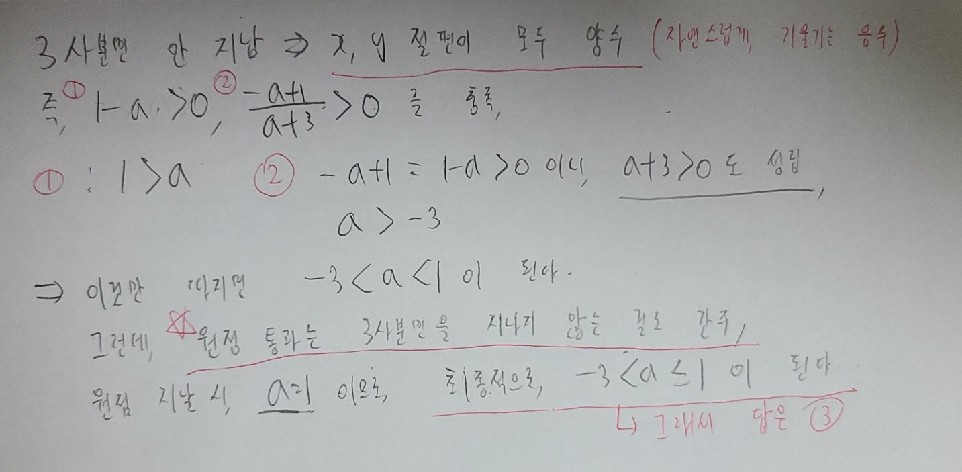 3사분면 안 지남 ⇒ x, y 절편이 모두 양수 (자연스럽게, 기울기는 음수)
즉, ① 1-a>0, ② \frac{-a+1}{a+3}>0 를 충족,
① : 1>a ② -a+1 = 1-a>0 이니, a+3>0 도 성립,
a > -3
⇒ 이것만 따지면 -3<a<1 이 된다.
그런데, ☆ 원점 통과는 3사분면을 지나지 않는 걸로 간주,
원점 지날 시, a=1 이므로, 최종적으로, -3<a≤1 이 된다
↳ 그래서 답은 ③